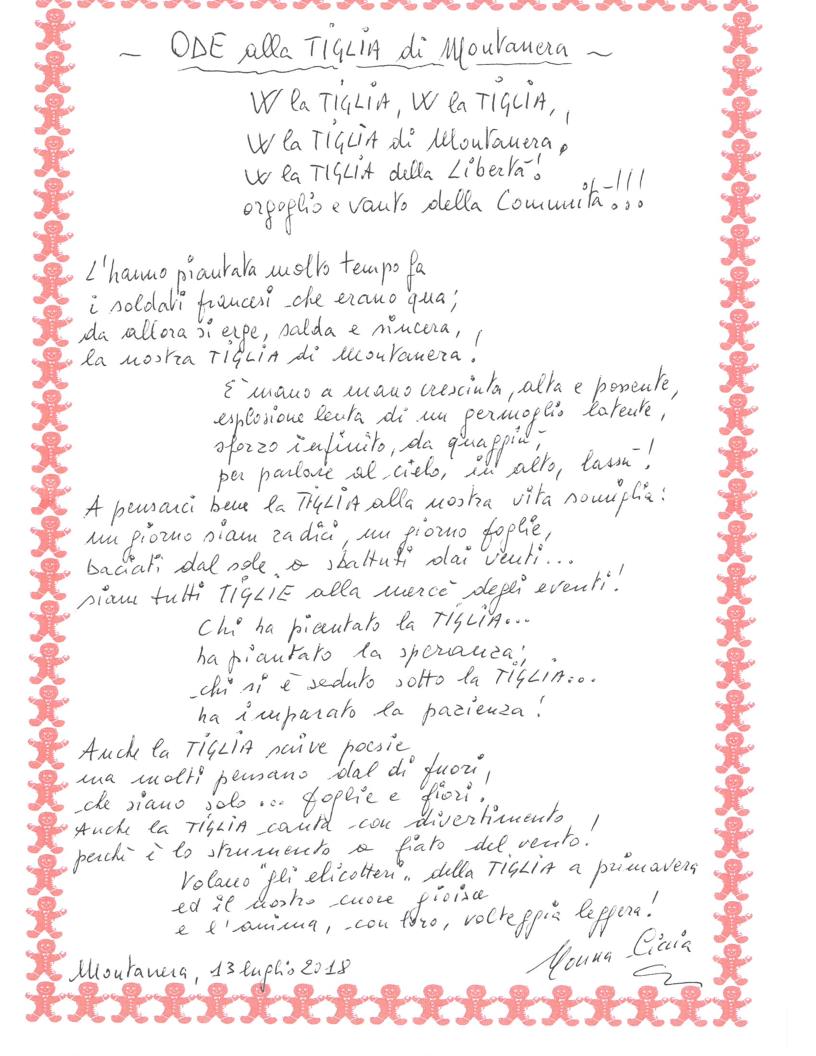 ~ ODE alla TIGLIA di Montanera ~
W la TIGLIA, W la TIGLIA,
W la TIGLIA di Montanera!
W la TIGLIA della Libertà!
orgoglio e vanto della Comunità!!!
L'hanno piantata molto tempo fa
i soldati francesi che erano qua;
da allora si erge, salda e sincera,
la nostra TIGLIA di Montanera!
E' mano a mano cresciuta, alta e possente,
esplosione lenta di un germoglio latente,
sforzo infinito, da quaggiù,
per parlare al cielo, in alto, lassù!
A pensarci bene la TIGLIA alla nostra vita somiglia:
un giorno siam radici, un giorno foglie,
baciati dal sole o sbattuti dai venti...
siam tutti TIGLIE alla mercè degli eventi!
Chi ha piantato la TIGLIA...
ha piantato la speranza;
chi si è seduto sotto la TIGLIA...
ha imparato la pazienza!
Anche la TIGLIA scrive poesie
ma molti pensano dal di fuori,
che siano solo... foglie e fiori.
Anche la TIGLIA canta con divertimento
perchè è lo strumento a fiato del vento!
Volano "gli elicotteri" della TIGLIA a primavera
ed il nostro cuore gioisce
e l'anima, con loro, volteggia leggera!
Montanera, 13 luglio 2018
Monna Ciccia